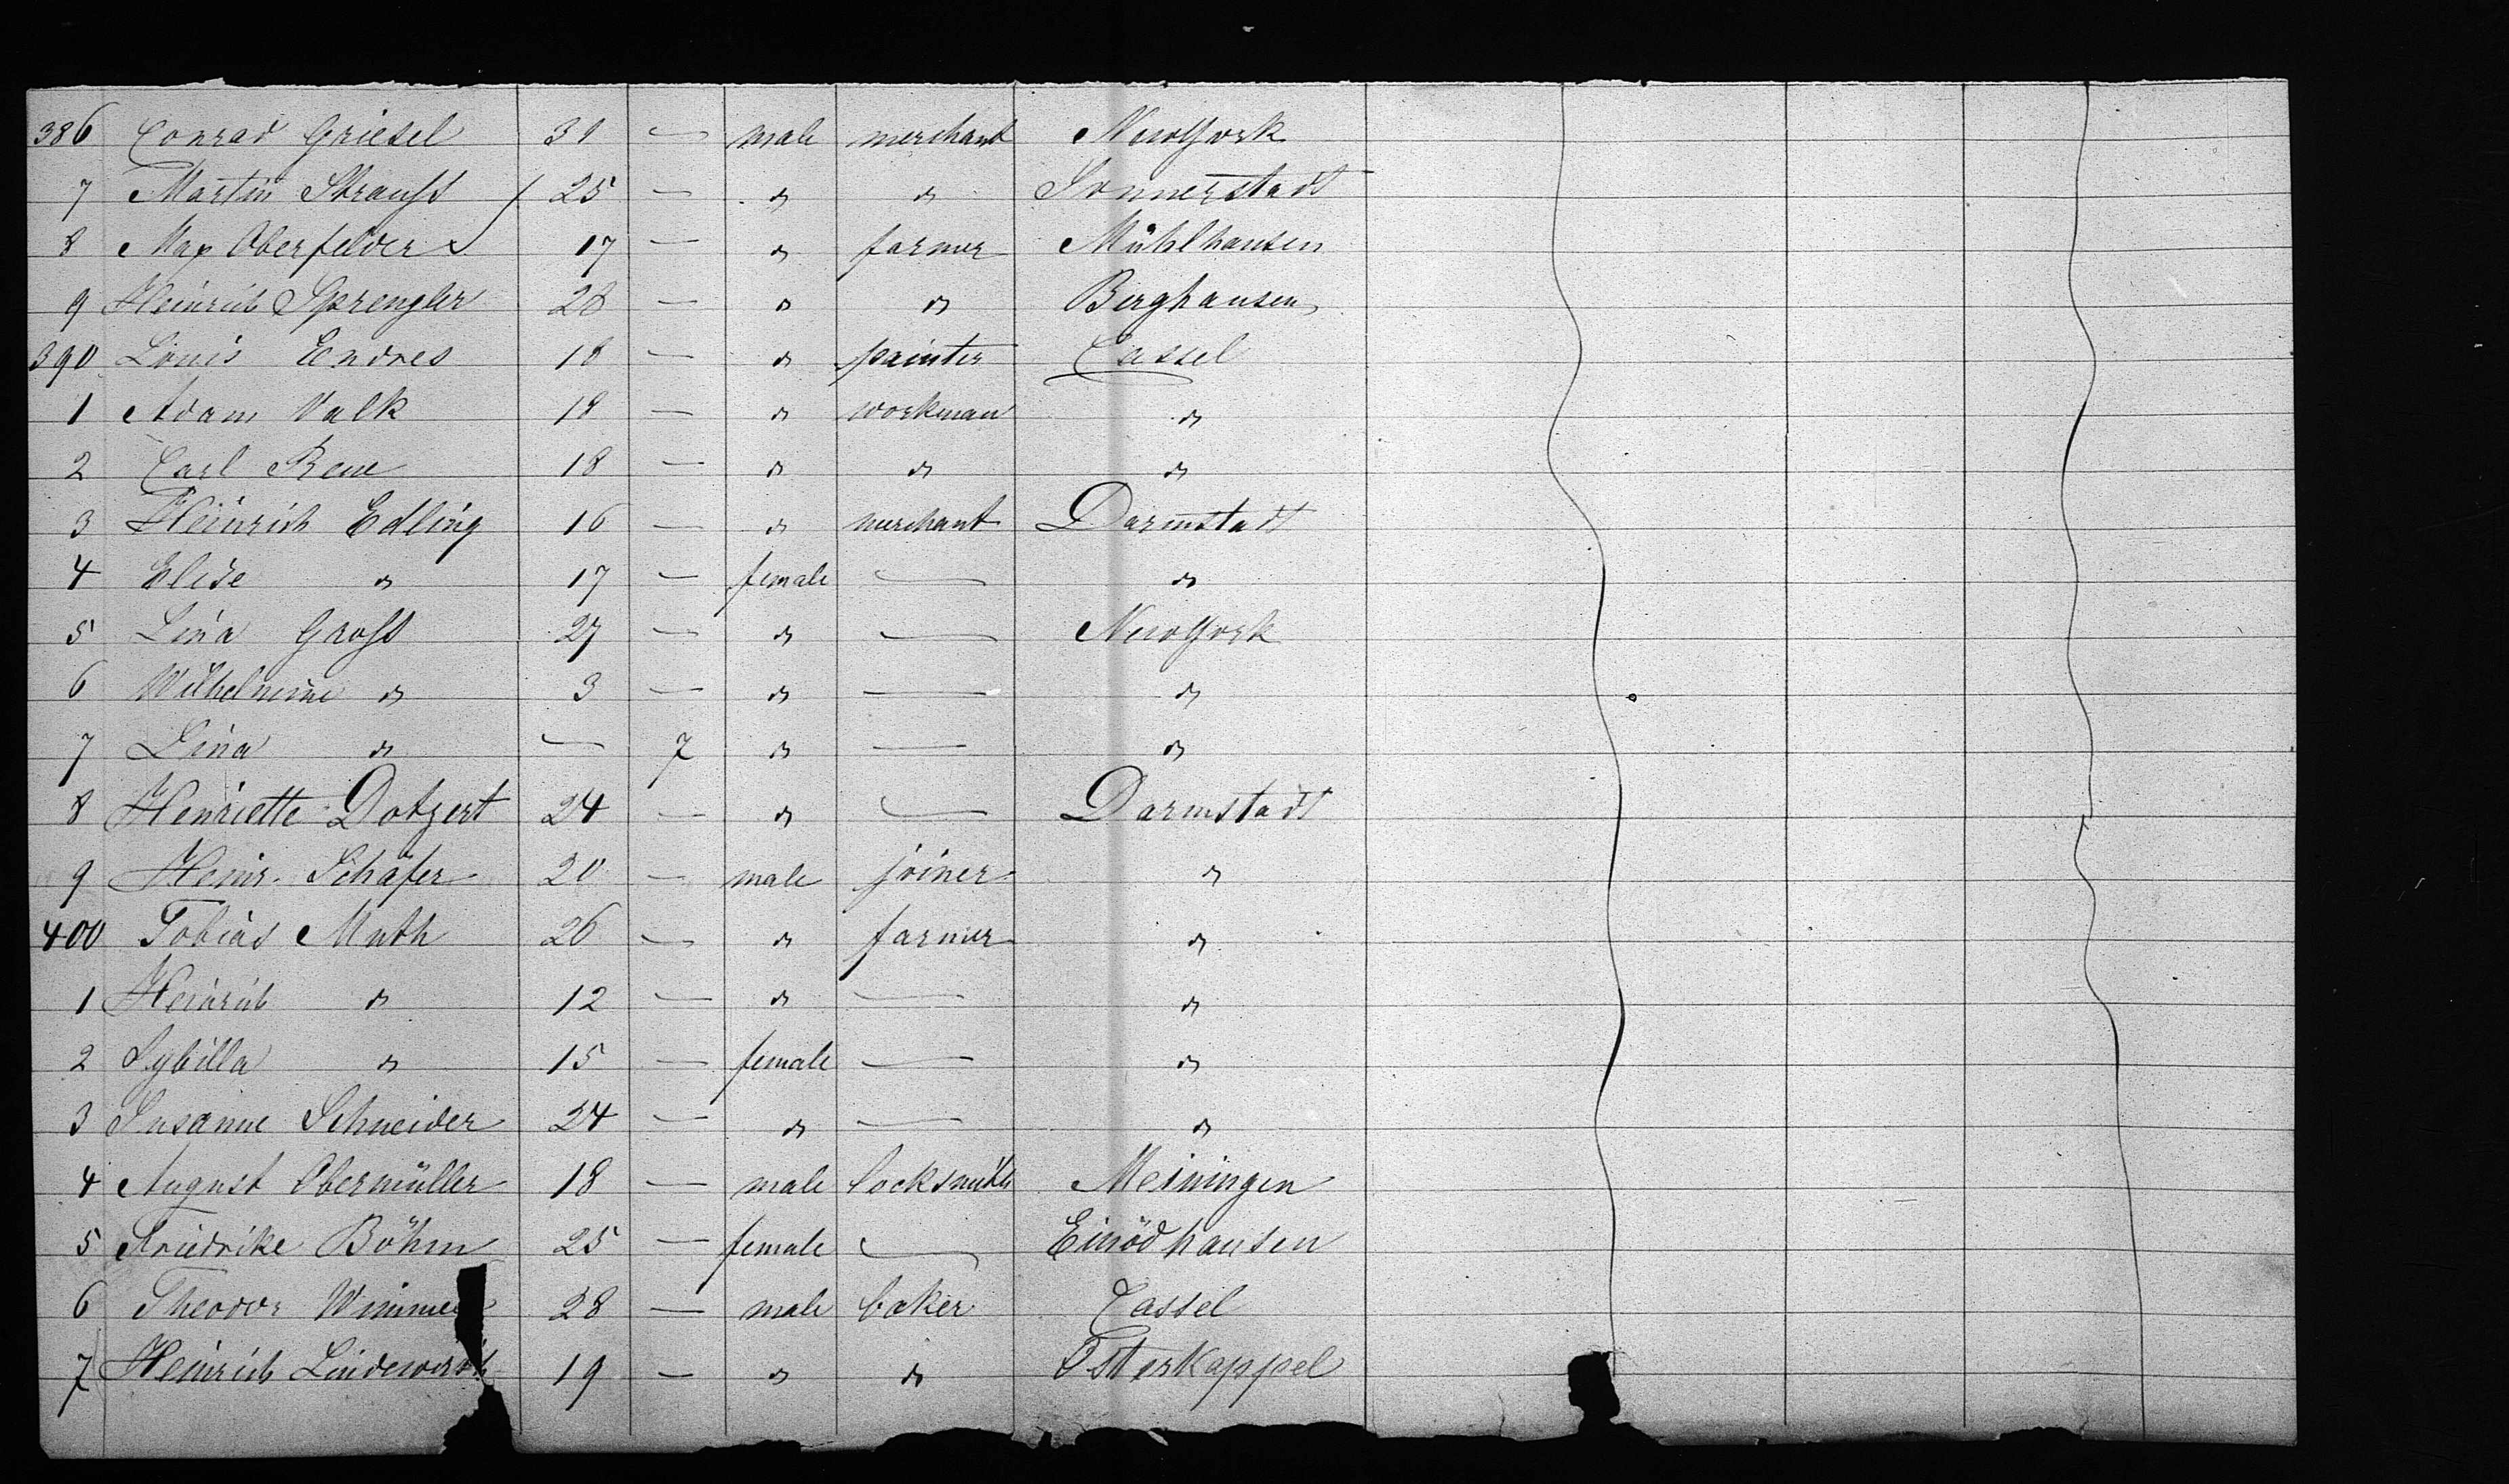 386 Conrad Griesel 31 — male merchant NewYork
7 Martin Strauss / 25 — " " Sonnerstadt
8 Max Oberfelder 17 — " farmer Mühlhausen
9 Heinrich Sprengler 28 — " " Berghausen
390 Louis Endres 18 — " painter Cassel
1 Adam Valk 18 — " workman "
2 Carl 18 — " " "
3 Heinrich Edling 16 — " merchant Darmstadt
4 Elise " 17 — female — "
5 Lina Gross 27 — " — NewYork
6 Wilhelmine " 3 — " — "
7 Lina " — 7 " — "
8 Henriette Dotzert 24 — " — Darmstadt
9 Heinr. Schäfer 20 — male joiner "
400 Tobias Muth 26 — " farmer "
1 Heinrich " 12 — " — "
2 Sybilla " 15 — female — "
3 Susanne Schneider 24 — " — "
4 August Obermüller 18 — male locksmith Meiningen
5 Friedrike Böhm 25 — female — Einödhausen
6 Theodor Wimmer 28 — male baker Cassel
7 Heinrich Lindewirth 19 — " " Osterkappel